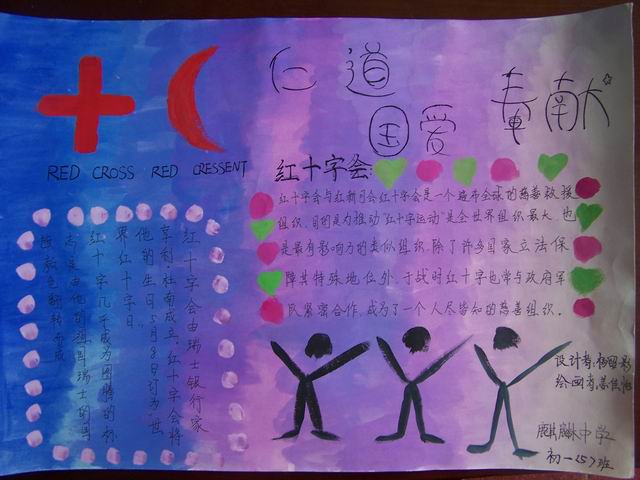 仁道
国爱
奉献
RED CROSS RED CRESSENT
红十字会:
红十字会与红新月会红十字会是一个遍布全球的慈善救援
组织,目的是为推动“红十字运动”是全世界组织最大,也
是最有影响力的类似组织,除了许多国家立法保
障其特殊地位外,于战时红十字也常与政府军
队紧密合作,成为了一个人尽皆知的慈善组织。
红十字会由瑞士银行家
享利·杜南成立,红十字会将
他的生日5月8日订为“世
界红十字日。
红十字几乎成为图腾的标
志是由他的祖国瑞士的国
旗颜色翻转而成
设计者:杨
绘图者:姜佳
麒麟中学
初一257班